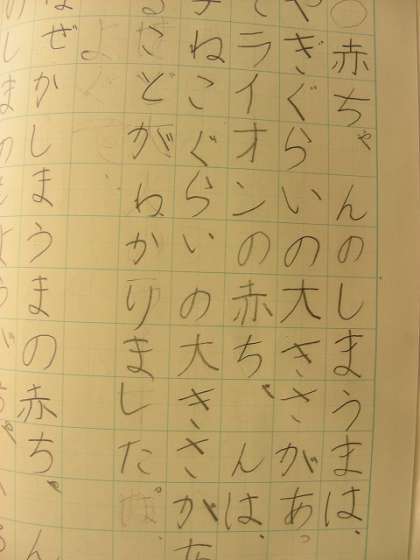 ○赤ちゃんのしまうまは、
やぎぐらいの大きさがあっ
てライオンの赤ちゃんは、
子ねこぐらいの大きさがあ
るこどがわかりました
なぜかしまうまの赤ちゃん